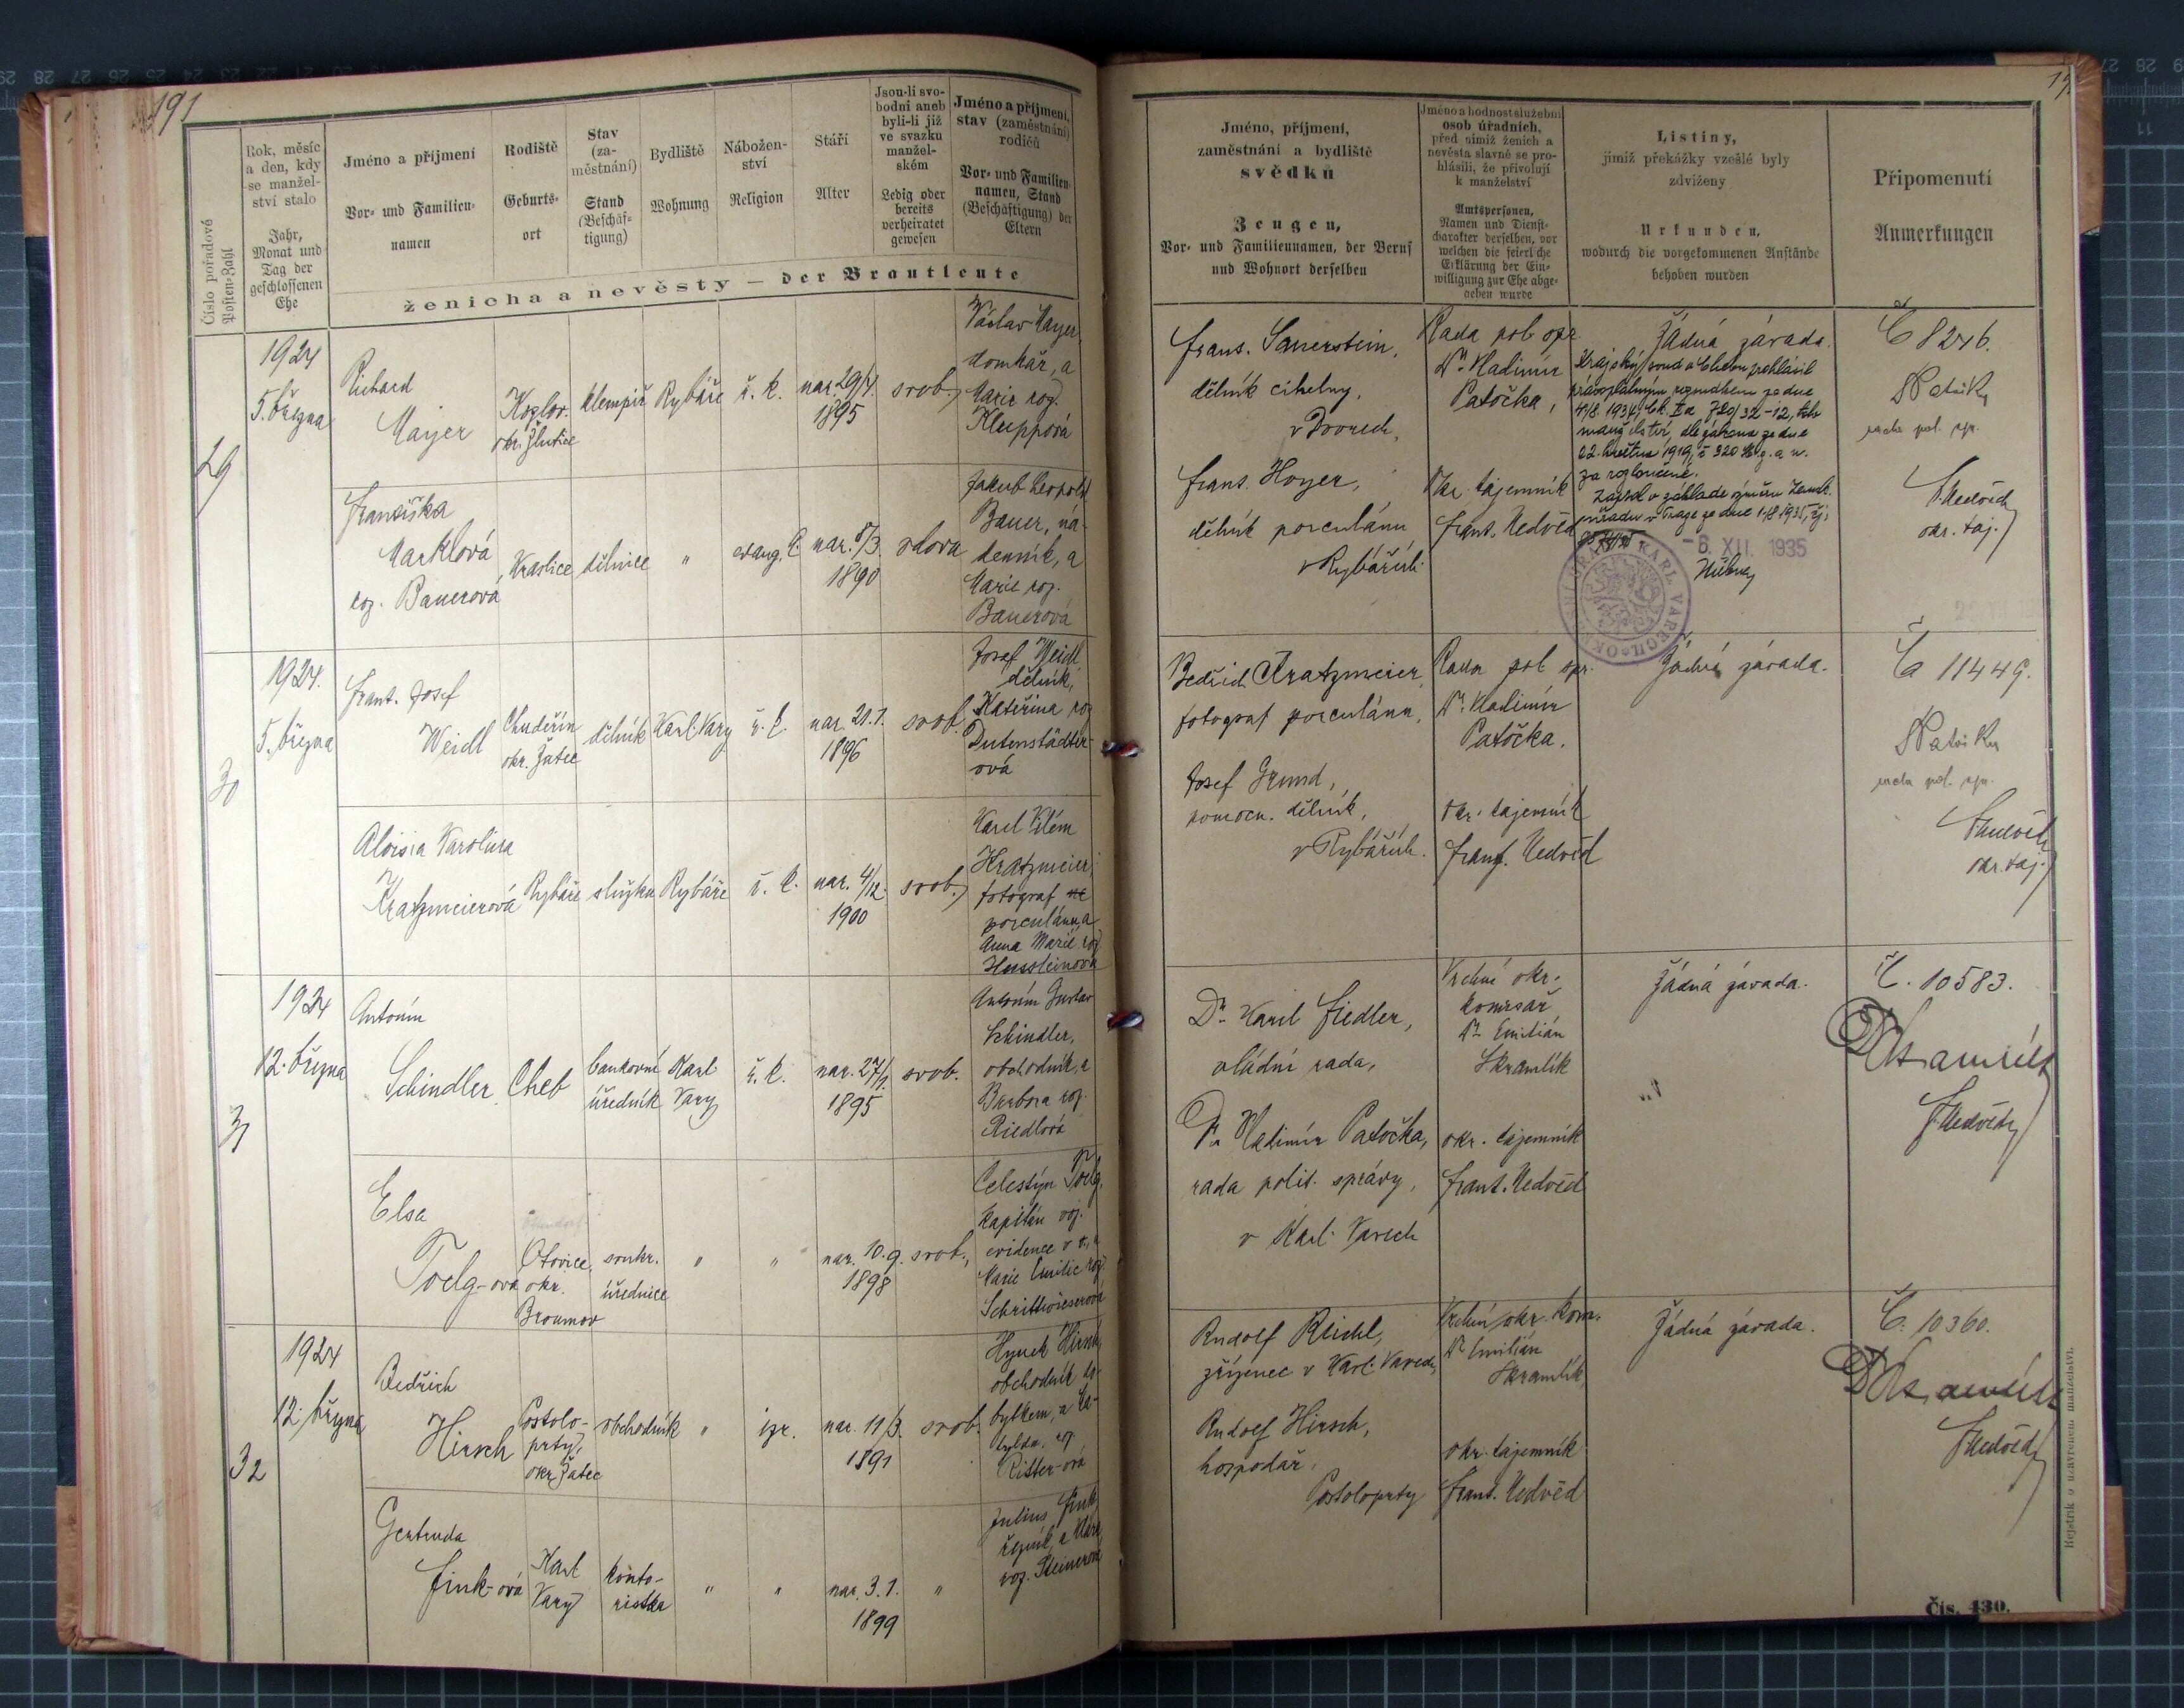 191
Číslo pořadové
Posten-Zahl
Rok, měsíc
a den, kdy
se manžel-
ství stalo
Jahr,
Monat und
Tag der
geschlossenen
Ehe
Jméno a příjmení
Vor- und Familien-
namen
Rodiště
Geburts-
ort
Stav
(za-
městnání)
Stand
(Beschäf-
tigung)
Bydliště
Wohnung
Nábožen-
ství
Religion
Stáří
Alter
Jsou-li svo-
bodni aneb
byli-li již
ve svazku
manžel-
ském
Ledig oder
bereits
verheiratet
gewesen
Jméno a příjmení,
stav (zaměstnání)
rodičů
Vor- und Familien-
namen, Stand
(Beschäftigung) der
Eltern
ženicha a nevěsty — der Brautleute
29
1924
5. března
Richard
Mayer
Kozlov.
okr. Žlutice
klempíř
Rybáře
ř. k.
nar. 29/4.
1895
svob.
Václav Mayer,
domkář, a
Marie roz.
Kluppová
Františka
Marklová
roz. Bauerová
Kraslice
dělnice
"
evang.
nar. 5/3.
1890
vdova
Jakub Leopold
Bauer, ná-
denník, a
Marie roz.
Bauerová
30
1924.
5. března
Frant. Josef
Weidl
Chuděřín
okr. Žatec
dělník
Karl. Vary
ř. k.
nar. 21.1.
1896
svob.
Josef Weidl,
dělník,
Kateřina roz.
Dutenstädter-
ová
Aloisia Karolina
Kratzmeierová
Rybáře
služka
Rybáře
ř. k.
nar. 4/12.
1900
svob.
Karel Vilém
Kratzmeier,
fotograf
porculánu, a
Anna Marie roz.
Hussleinová
31
1924
12. března
Antonín
Schindler
Cheb
bankovní
úředník
Karl.
Vary
ř. k.
nar. 27/1.
1895
svob.
Antonín Gustav
Schindler,
obchodník, a
Barbora roz.
Riedlová
Elsa
Toelg-ová
Otovice,
okr.
Broumov
soukr.
úřednice
"
"
nar. 10.9.
1898
svob.,
Celestýn Toelg,
kapitán voj.
evidence v v., a
Marie Emilie roz.
Schrittwieserová
32
1924
12. března
Bedřich
Hirsch
Postolo-
prty,
okr. Žatec
obchodník
"
izr.
nar. 11/3.
1891
svob.
Hynek Hirsch,
obchodník
Ritter-ová
Gertruda
Fink-ová
Karl.
Vary
konto-
ristka
"
"
nar. 3.1.
1899
"
Julius Fink,
řezník, a
roz. Steinerová
Jméno, příjmení,
zaměstnání a bydliště
svědků
Zeugen,
Vor- und Familiennamen, der Beruf
und Wohnort derselben
Jméno a hodnost služební
osob úřadních,
před nimiž ženich a
nevěsta slavně se pro-
hlásili, že přivolují
k manželství
Amtspersonen,
Namen und Dienst-
charakter derselben, vor
welchen die feierliche
Erklärung der Ein-
willigung zur Ehe abge-
geben wurde
Listiny,
jimiž překážky vzešlé byly
zdviženy
Urkunden,
wodurch die vorgekommenen Anstände
behoben wurden
Připomenutí
Anmerkungen
Frant. Sauerstein,
dělník cihelny,
v Dvorech,
Frant. Hoyer,
dělník porculánu
v Rybářích.
Rada pol. spr.
Dr. Vladimír
Patočka,
Okr. tajemník
Frant. Nedvěd
Žádná závada.
Krajský soud v Chebu prohlásil
právoplatným rozsudkem ze dne
4/8. 1934, Čk. Ia 720/32-12, toto
manželství, dle zákona ze dne
22. května 1919, č. 320 Sb. z. a n.
za rozloučené.
Zápis v základě výnosu Zemsk.
úřadu v Praze ze dne 1935, čj.:
-6. XII. 1935
KARL. VARECH
Č 8246.
Patočka
rada pol. spr.
Nedvěd
okr. taj.
Bedřich Kratzmeier,
fotograf porculánu,
Josef Grund,
pomocn. dělník,
v Rybářích.
Rada pol. spr.
Dr. Vladimír
Patočka.
Okr. tajemník
Frant. Nedvěd
Žádná závada.
Č 11449.
Patočka
rada pol. spr.
Nedvěd
okr. taj.
Dr. Karel Fiedler,
vládní rada,
Dr. Vladimír Patočka,
rada polit. správy,
v Karl. Varech
Vrchní okr.
komisař
Dr. Emilián
Skramlík
okr. tajemník
Frant. Nedvěd
Žádná závada.
Č. 10583.
Skramlík
Nedvěd
Rudolf Reichl,
zřízenec v Karl. Varech,
Rudolf Hirsch,
hospodář,
Postoloprty
Vrchní okr. kom.
Dr. Emilián
Skramlík,
okr. tajemník
Frant. Nedvěd
Žádná závada.
Č. 10360.
Skramlík
Nedvěd
Rejstřík o uzavřeném manželství.
Čís. 430.